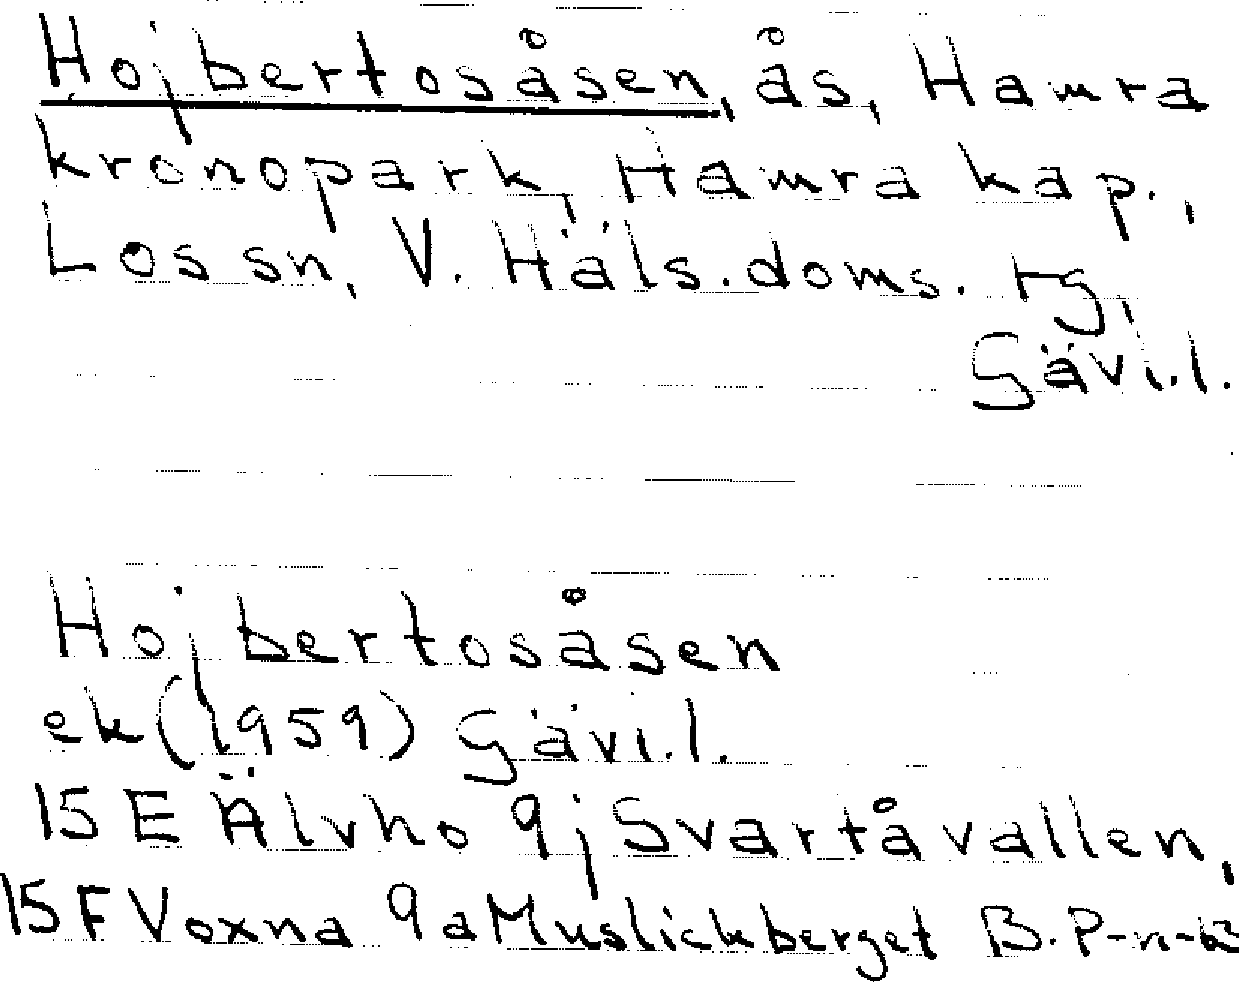 Hojbertosåsen, ås, Hamra
kronopark, Hamra kap.,
Los sn, V. Häls. doms. tg,
Gävl.l.
Hojbertosåsen
ek (1959) Gävl.l.
15 E Älvho 9j Svartåvallen,
15 F Voxna 9a Muslickberget B.P-n-